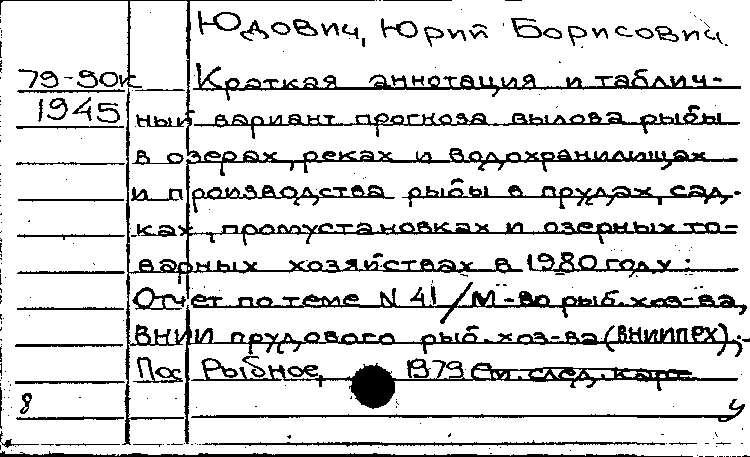 Юдович, Юрий Борисович
79-90к Краткая аннотация и таблич-
1945 ный вариант прогноза вылова рыбы
в озерах, реках и водохранилищах
и производства рыбы в прудах, сад-
ках, промустановках и озерных то-
варных хозяйствах в 1980 году:
Отчет по теме N 41/М-во рыб. хоз-ва,
ВНИИ прудового рыб. хоз-ва (ВНИИПРХ);-
Пос Рыбное, 1979 См. след. карт
8 У